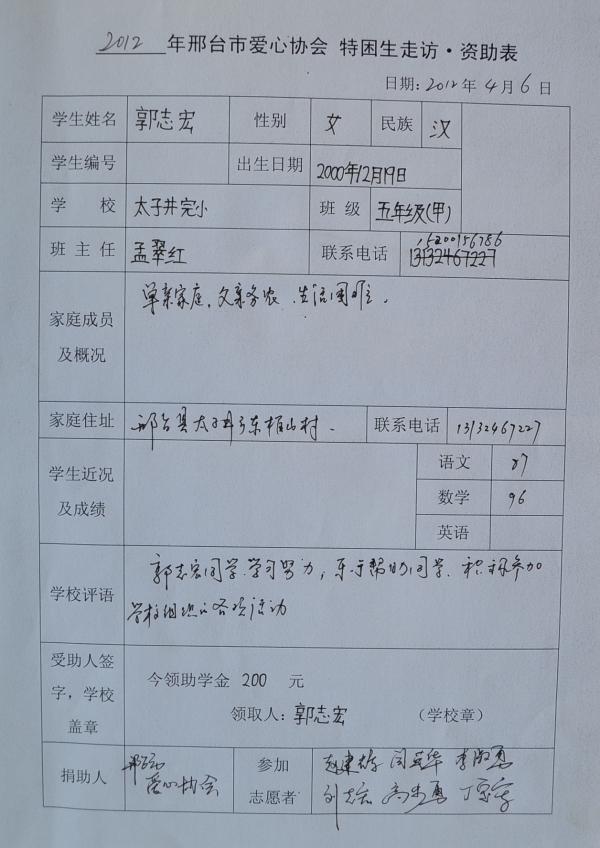 2012 年邢台市爱心协会 特困生走访·资助表
日期：2012年 4月 6日
学生姓名 郭志宏 性别 女 民族 汉
学生编号 出生日期 2000年12月19日
学 校 太子井完小 班 级 五年级(甲)
15200156786
班 主 任 孟翠红 联系电话 13132467227
单亲家庭，父亲务农、生活困难。
家庭成员
及概况
家庭住址 邢台县太子井乡东 山村. 联系电话 13132467227
语文 87
学生近况
及成绩
数学 96
英语
郭志宏同学学习努力，乐于帮助同学、积极参加
学校组织的各项活动
学校评语
受助人签
字，学校
盖章
今领助学金 200 元
领取人：郭志宏 （学校章）
捐助人 邢台 爱心协会
参加
志愿者